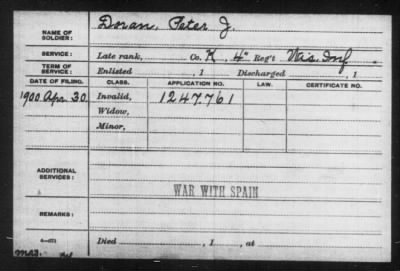 NAME OF SOLDIER: Doran, Peter J.
SERVICE: Late rank, Co. K, 4" Reg't Wis. Inf
TERM OF SERVICE: Enlisted , 1 Discharged , 1
DATE OF FILING. CLASS. APPLICATION NO. LAW. CERTIFICATE NO.
1900 Apr. 30 Invalid, 1247.761
Widow,
Minor,
ADDITIONAL SERVICES:
WAR WITH SPAIN
REMARKS:
Died , 1 , at